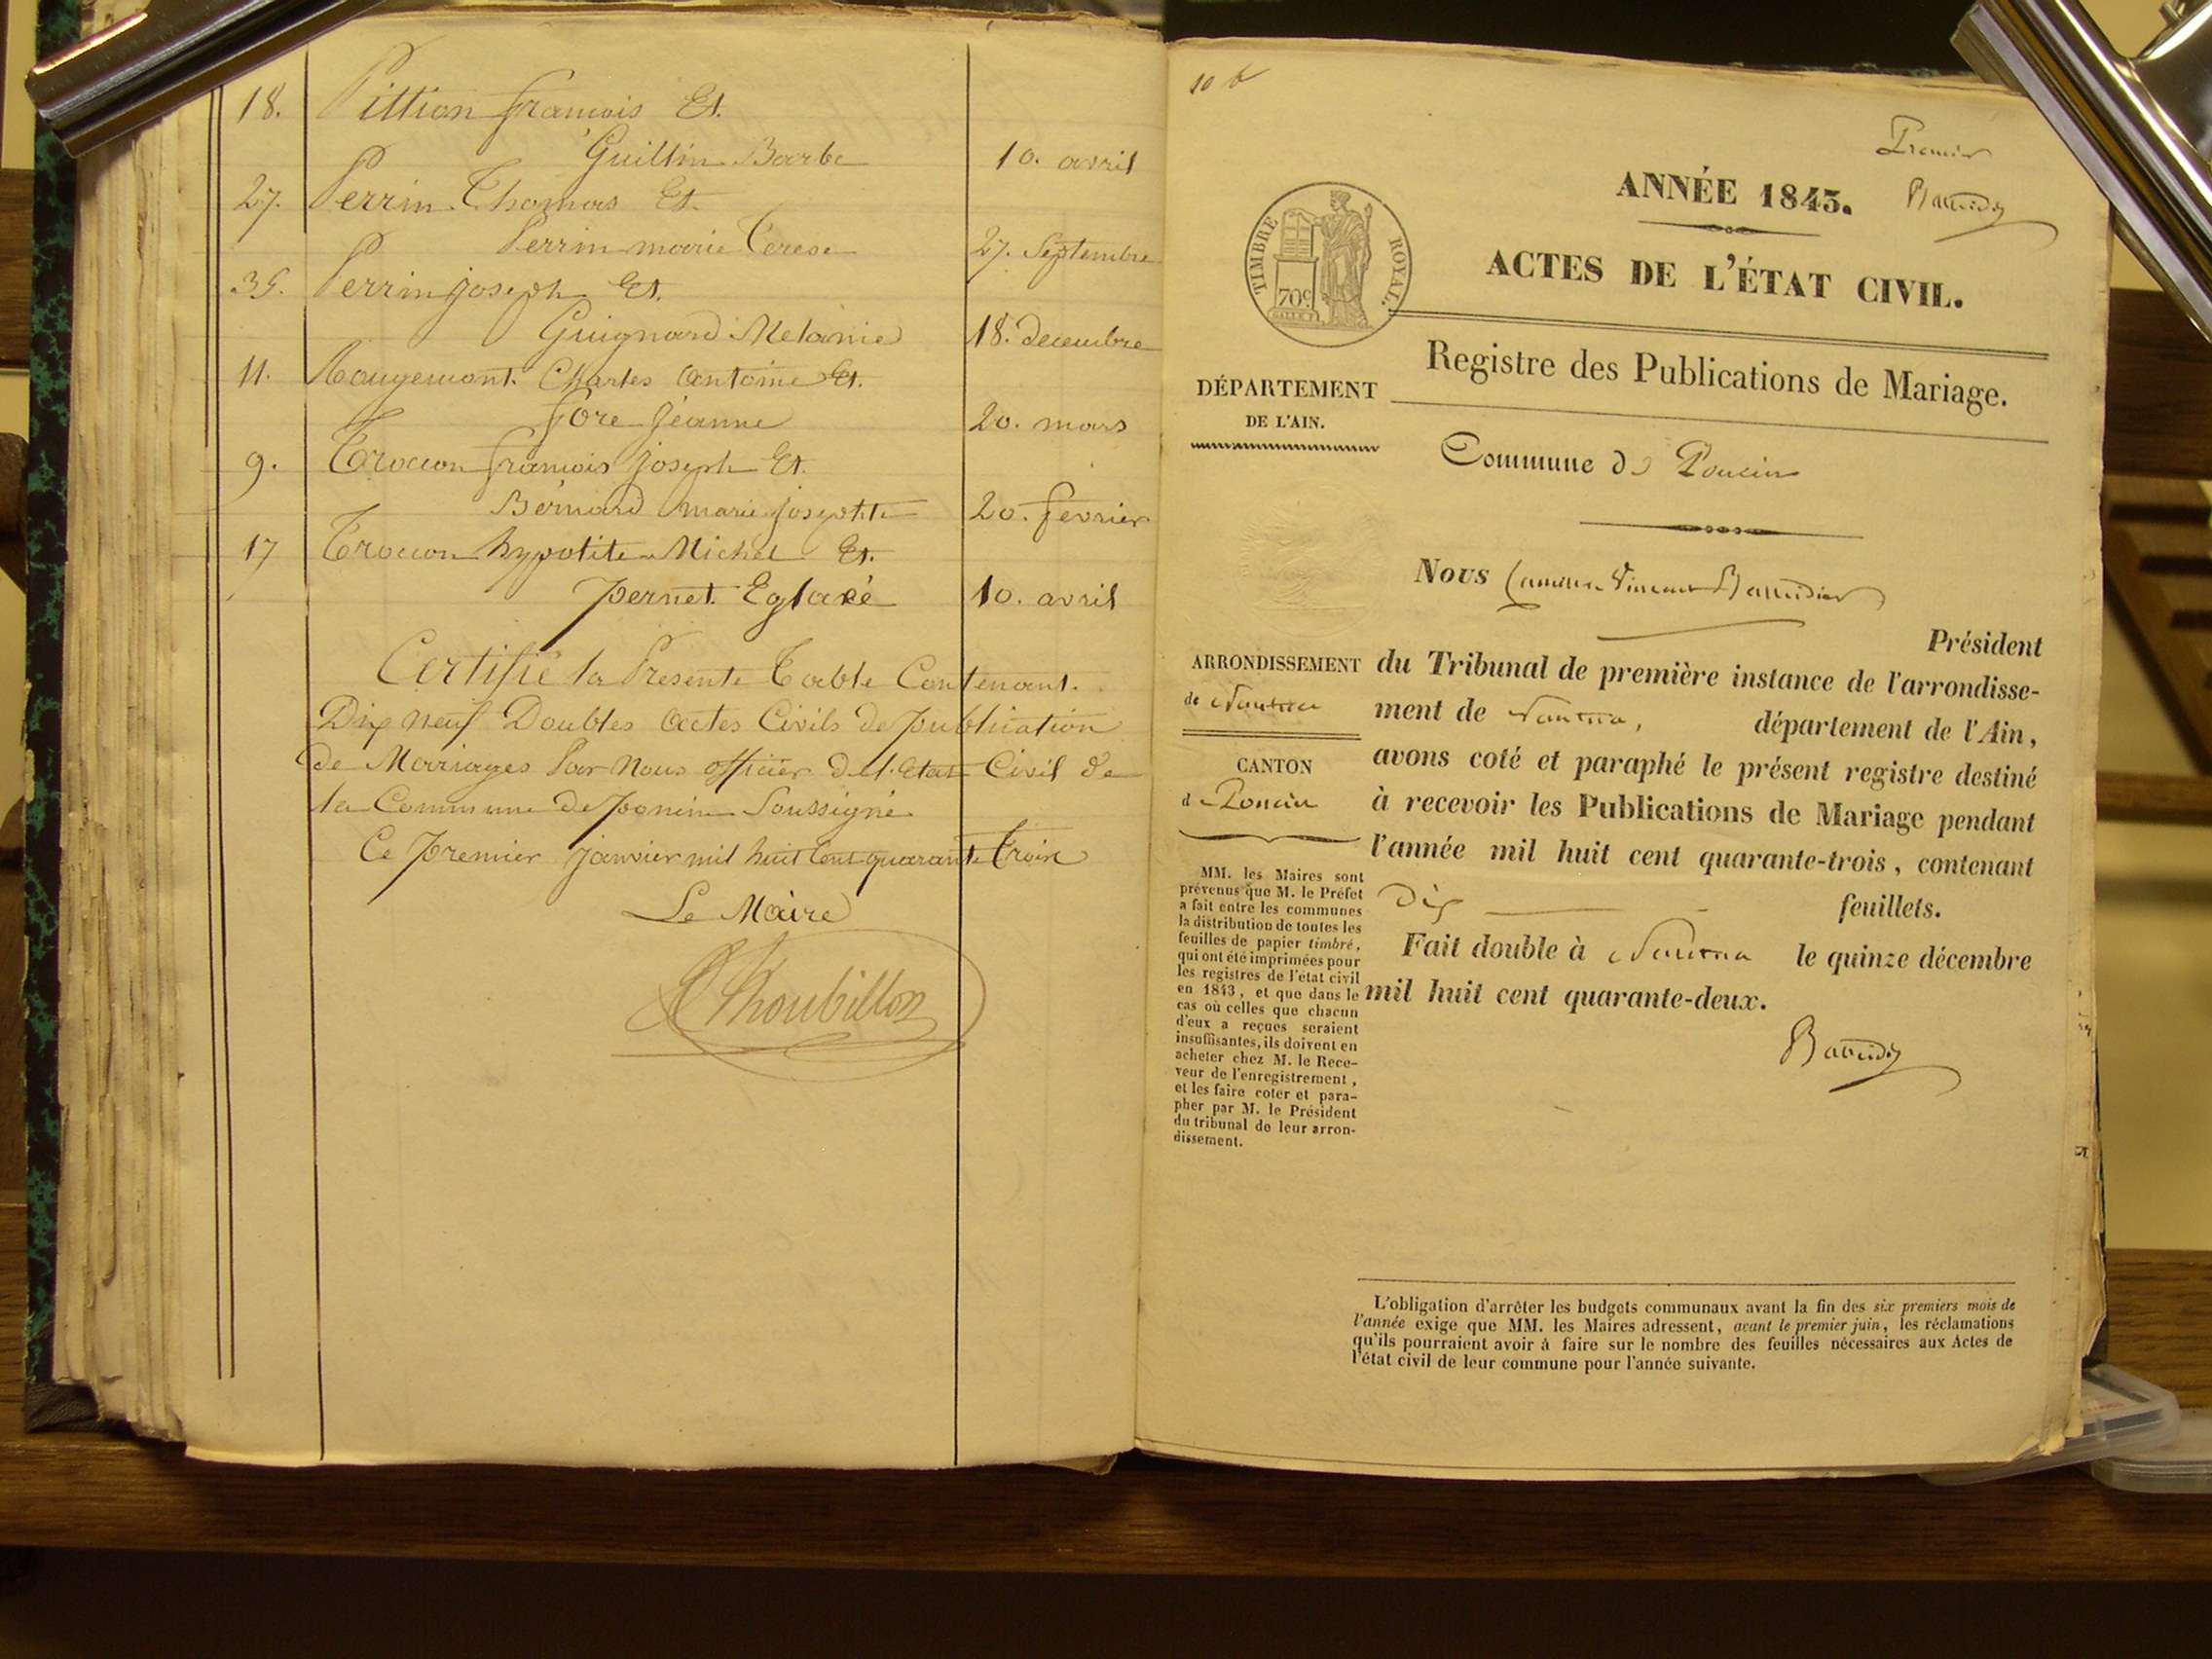 18. Pittion francois Et.
Guillin Barbe 10. avril
27. Perrin Thomas Et.
Perrin marie Terese 27. Septembre
35. Perrin joseph Et.
Guignard Melanie 18. decembre
11. Rougemont. Charles Antoine Et.
fore Jeanne 20. mars
9. Troccon francois joseph Et.
Bernard marie josephte 20. fevrier
17 Troccon hypolite Michel Et.
pernet. Eglaée 10. avril
Certifié la Presente Table Contenant.
Dix neuf Doubles Actes Civils de publication
de Mariages Par Nous officier De l'Etat Civil de
la Commune De poncin Soussigné
Ce premier janvier mil huit Cent quarante Trois
Le Maire
10 f
Premier
ANNÉE 1843.
TIMBRE ROYAL.
70c
ACTES DE L'ÉTAT CIVIL.
Registre des Publications de Mariage.
DÉPARTEMENT
DE L'AIN.
Commune de Poncin
Nous Vincent
Président
ARRONDISSEMENT
de Nantua
CANTON
de Poncin
du Tribunal de première instance de l'arrondisse-
ment de Nantua, département de l'Ain,
avons coté et paraphé le présent registre destiné
à recevoir les Publications de Mariage pendant
l'année mil huit cent quarante-trois, contenant
Dix feuillets.
Fait double à Nantua le quinze décembre
mil huit cent quarante-deux.
MM. les Maires sont
prévenus que M. le Préfet
a fait entre les communes
la distribution de toutes les
feuilles de papier timbré,
qui ont été imprimées pour
les registres de l'état civil
en 1843, et que dans le
cas où celles que chacun
d'eux a reçues seraient
insuffisantes, ils doivent en
acheter chez M. le Rece-
veur de l'enregistrement,
et les faire coter et para-
pher par M. le Président
du tribunal de leur arron-
dissement.
L'obligation d'arrêter les budgets communaux avant la fin des six premiers mois de
l'année exige que MM. les Maires adressent, avant le premier juin, les réclamations
qu'ils pourraient avoir à faire sur le nombre des feuilles nécessaires aux Actes de
l'état civil de leur commune pour l'année suivante.